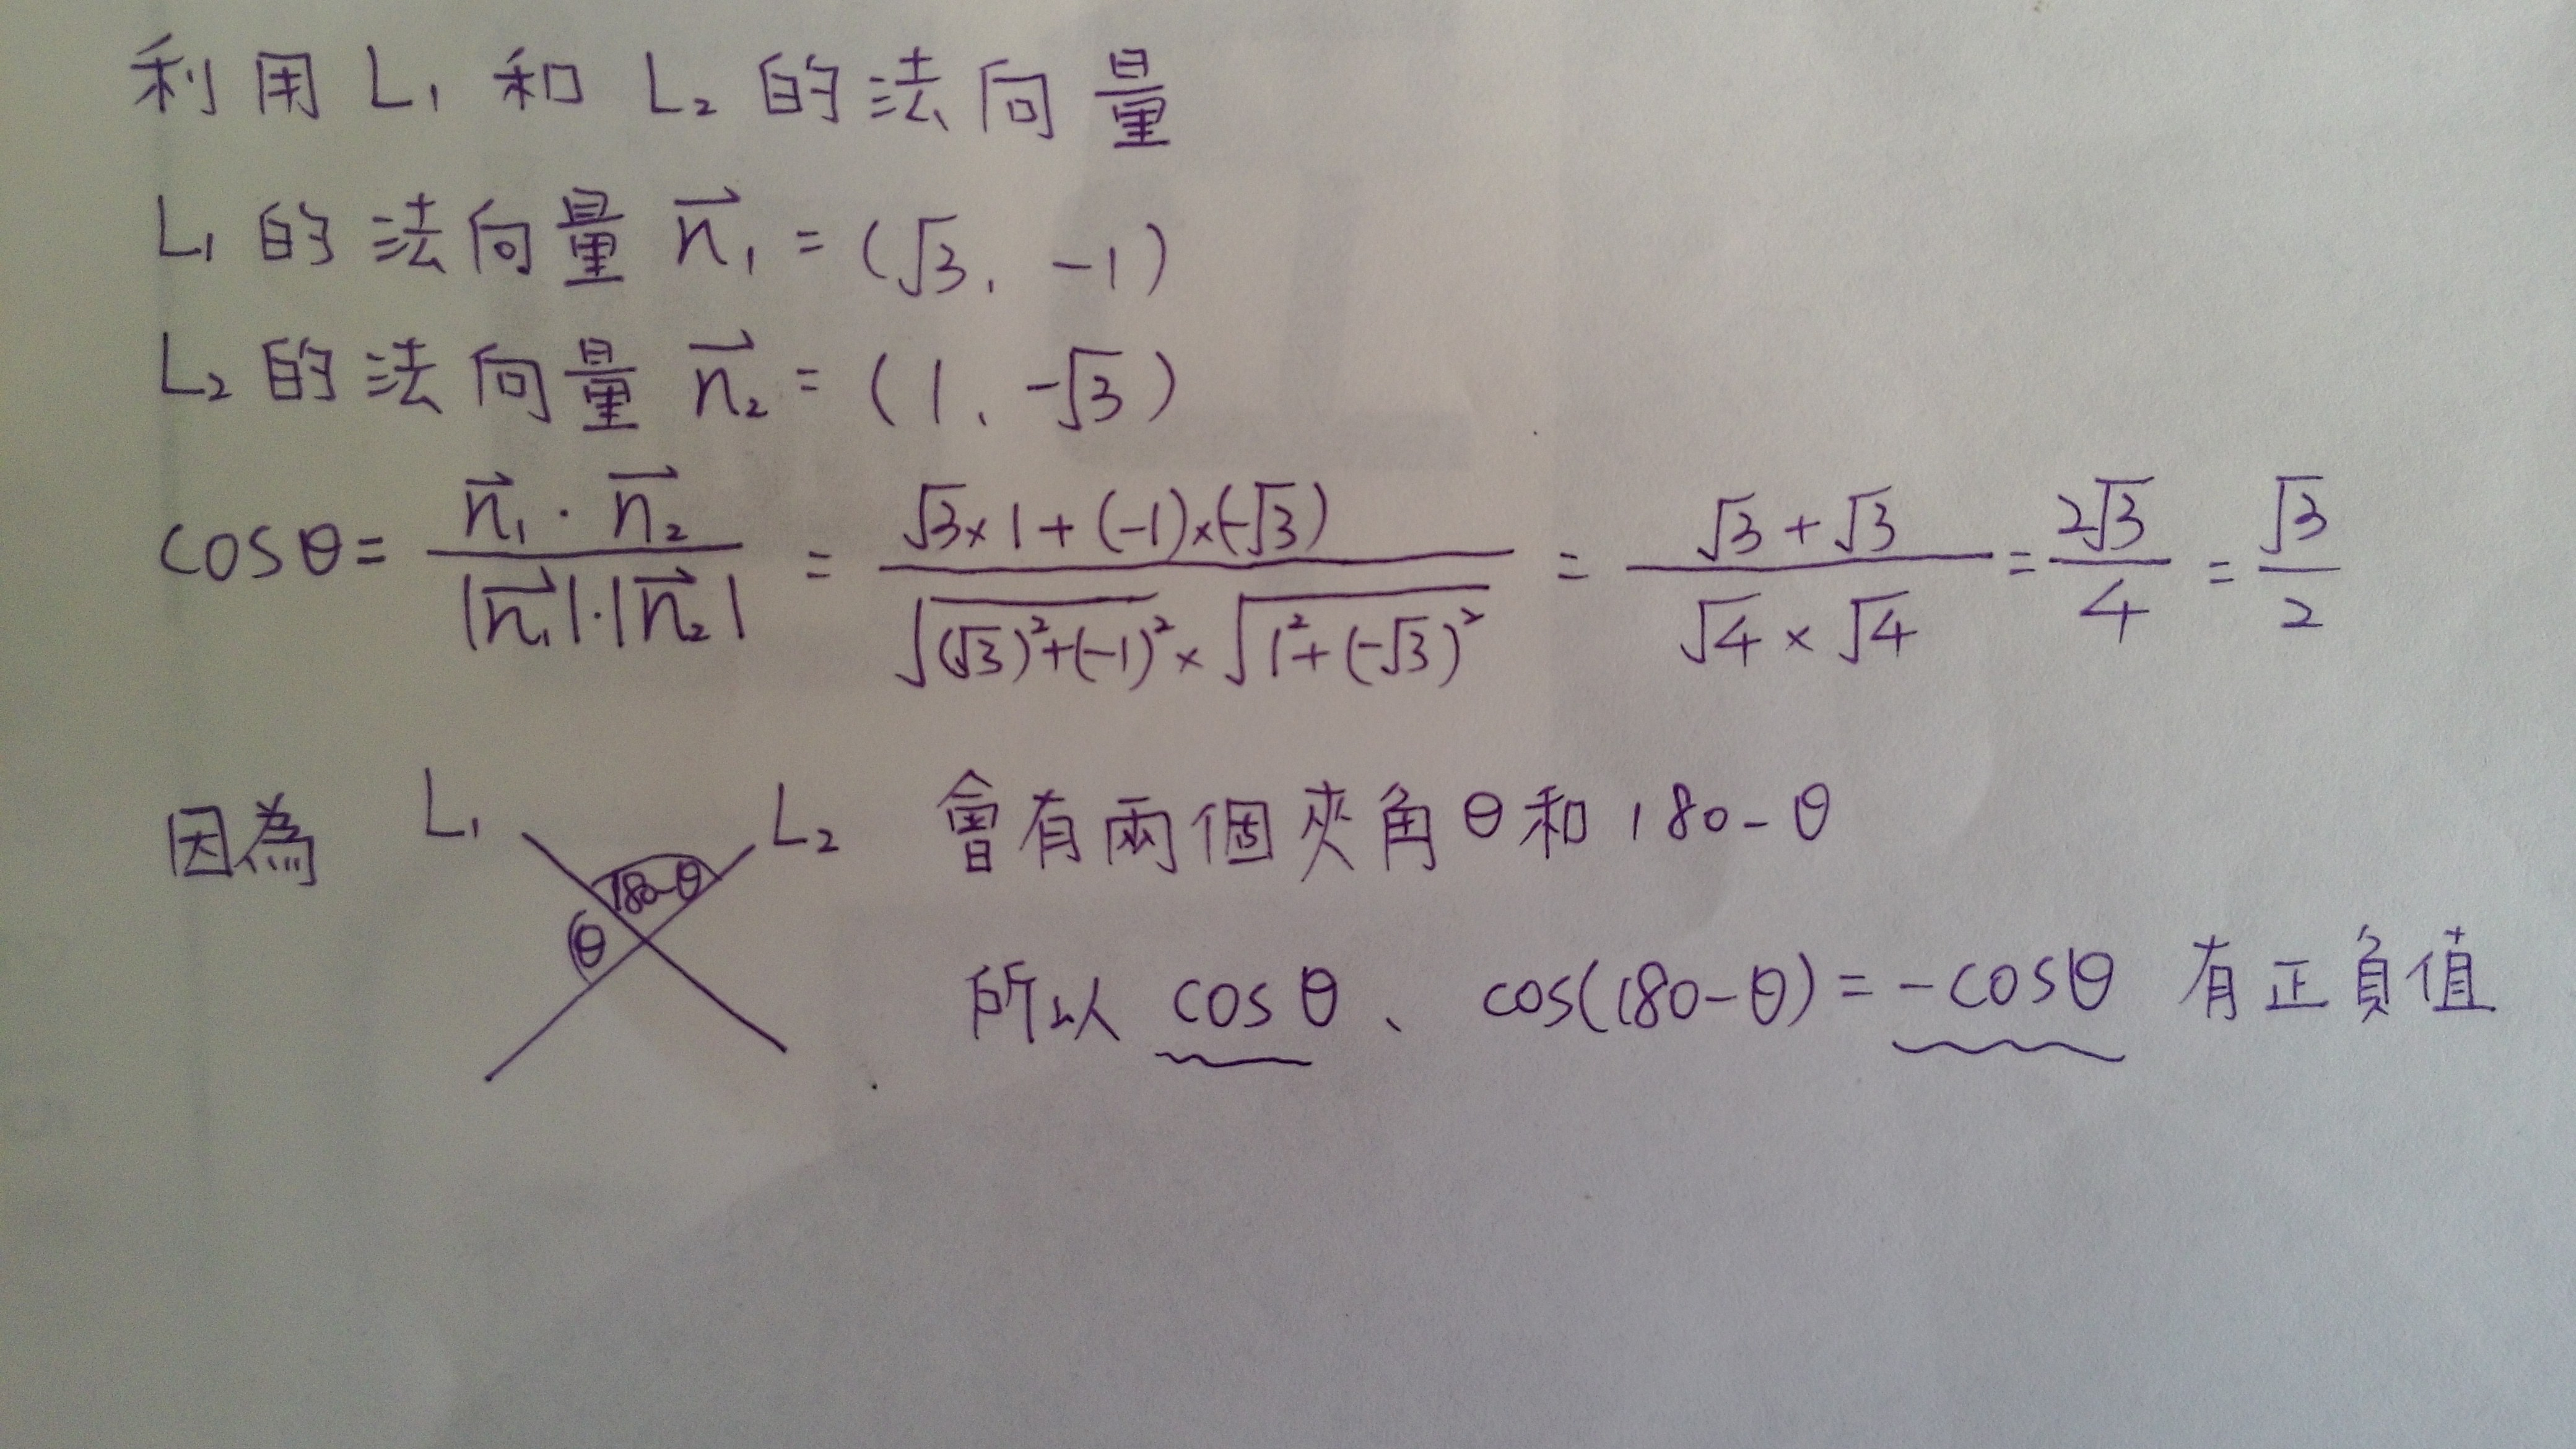 利用 L₁ 和 L₂ 的法向量
L₁ 的法向量 n⃗₁ = (√3, -1)
L₂ 的法向量 n⃗₂ = (1, -√3)
cosθ = (n⃗₁ · n⃗₂) / (|n⃗₁|·|n⃗₂|) = (√3×1+(-1)×(-√3)) / (√((√3)²+(-1)²) × √(1²+(-√3)²)) = (√3+√3) / (√4×√4) = 2√3/4 = √3/2
因為 L₁ L₂ 會有兩個夾角 θ 和 180-θ
180-θ
θ
所以 cosθ、cos(180-θ) = -cosθ 有正負值